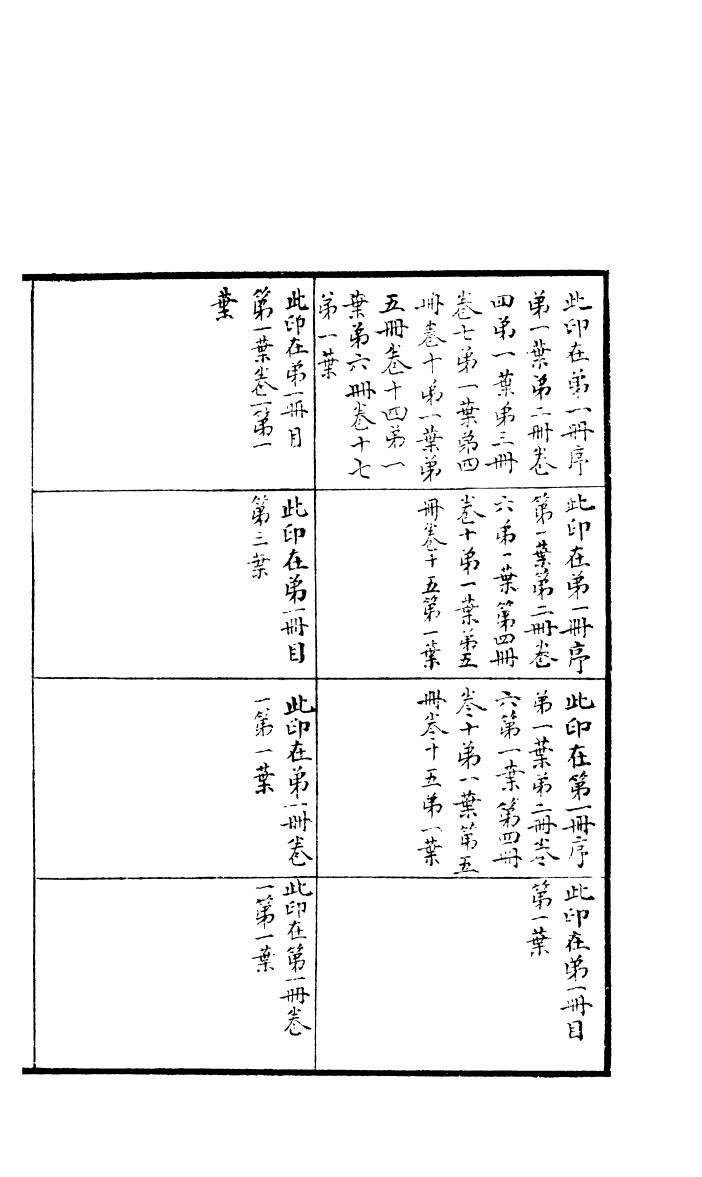 此印在第一冊序
第一葉第二冊卷
四第一葉第三冊
卷七第一葉第四
冊卷十第一葉第
五冊卷十四第一
葉第六冊卷十七
第一葉
此印在第一冊序
第一葉第二冊卷
六第一葉第四冊
卷十第一葉第五
冊卷十五第一葉
此印在第一冊序
第一葉第二冊卷
六第一葉第四冊
卷十第一葉第五
冊卷十五第一葉
此印在第一冊目
第一葉
此印在第一冊目
第一葉卷一第一
葉
此印在第一冊目
第三葉
此印在第一冊卷
一第一葉
此印在第一冊卷
一第一葉